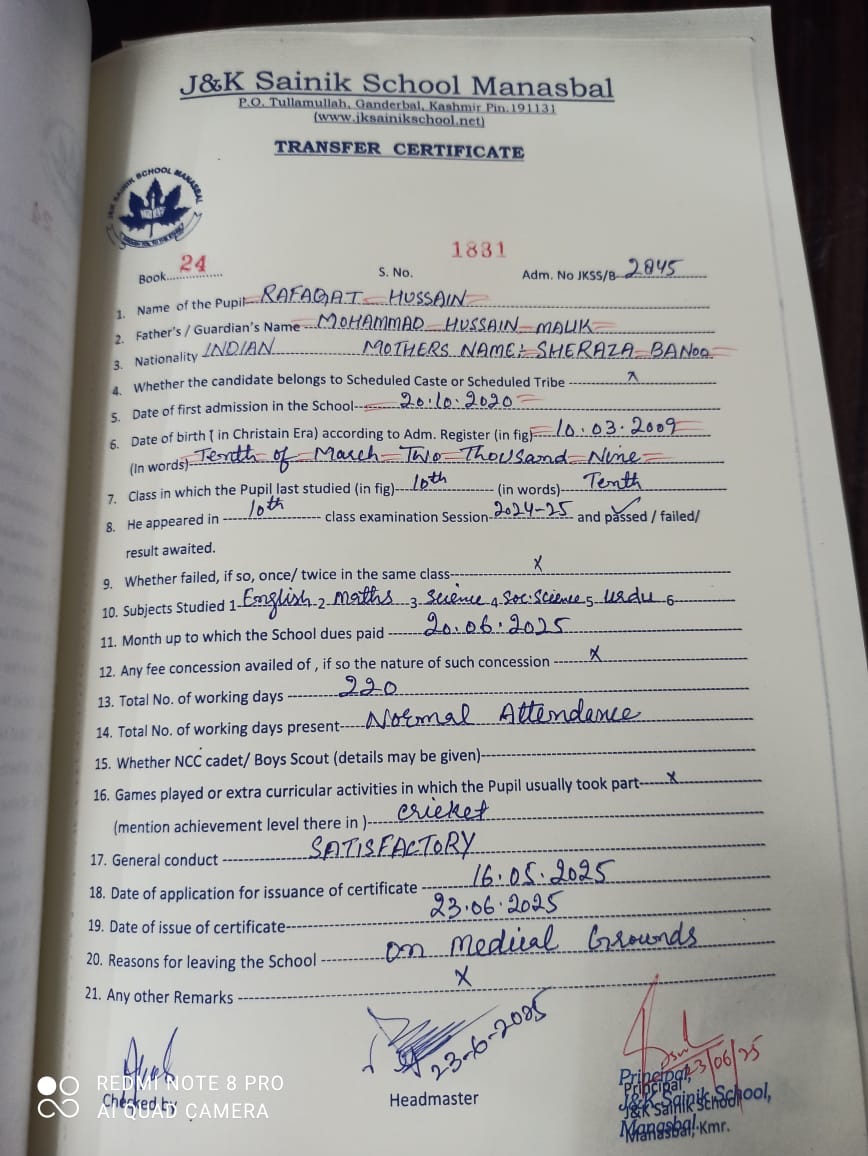 J&K Sainik School Manasbal
P.O. Tullamullah, Ganderbal, Kashmir Pin.191131
(www.jksainikschool.net)
TRANSFER CERTIFICATE
J&K SAINIK SCHOOL MANASBAL
Book 24 S. No. 1831 Adm. No JKSS/B 2845
1. Name of the Pupil RAFAQAT HUSSAIN
2. Father's / Guardian's Name MOHAMMAD HUSSAIN MALIK
3. Nationality INDIAN MOTHERS NAME: SHERAZA BANOO
4. Whether the candidate belongs to Scheduled Caste or Scheduled Tribe x
5. Date of first admission in the School 20.10.2020
6. Date of birth ( in Christain Era) according to Adm. Register (in fig) 10.03.2009
(In words) Tenth of March Two Thousand Nine
7. Class in which the Pupil last studied (in fig) 10th (in words) Tenth
8. He appeared in 10th class examination Session 2024-25 and passed / failed/
result awaited.
9. Whether failed, if so, once/ twice in the same class x
10. Subjects Studied 1 English 2 Maths 3 Science 4 Soc.Science 5 Urdu 6
11. Month up to which the School dues paid 20.06.2025
12. Any fee concession availed of , if so the nature of such concession x
13. Total No. of working days 220
14. Total No. of working days present Normal Attendence
15. Whether NCC cadet/ Boys Scout (details may be given)
16. Games played or extra curricular activities in which the Pupil usually took part x
(mention achievement level there in ) cricket
17. General conduct SATISFACTORY
18. Date of application for issuance of certificate 16.05.2025
19. Date of issue of certificate 23.06.2025
20. Reasons for leaving the School on Medical Grounds
21. Any other Remarks x
23-6-2025
23/06/25
Checked by Headmaster Principal,
Principal
J&K Sainik School,
J&K Sainik School
Manasbal,
Manasbal, Kmr.
REDMI NOTE 8 PRO
AI QUAD CAMERA